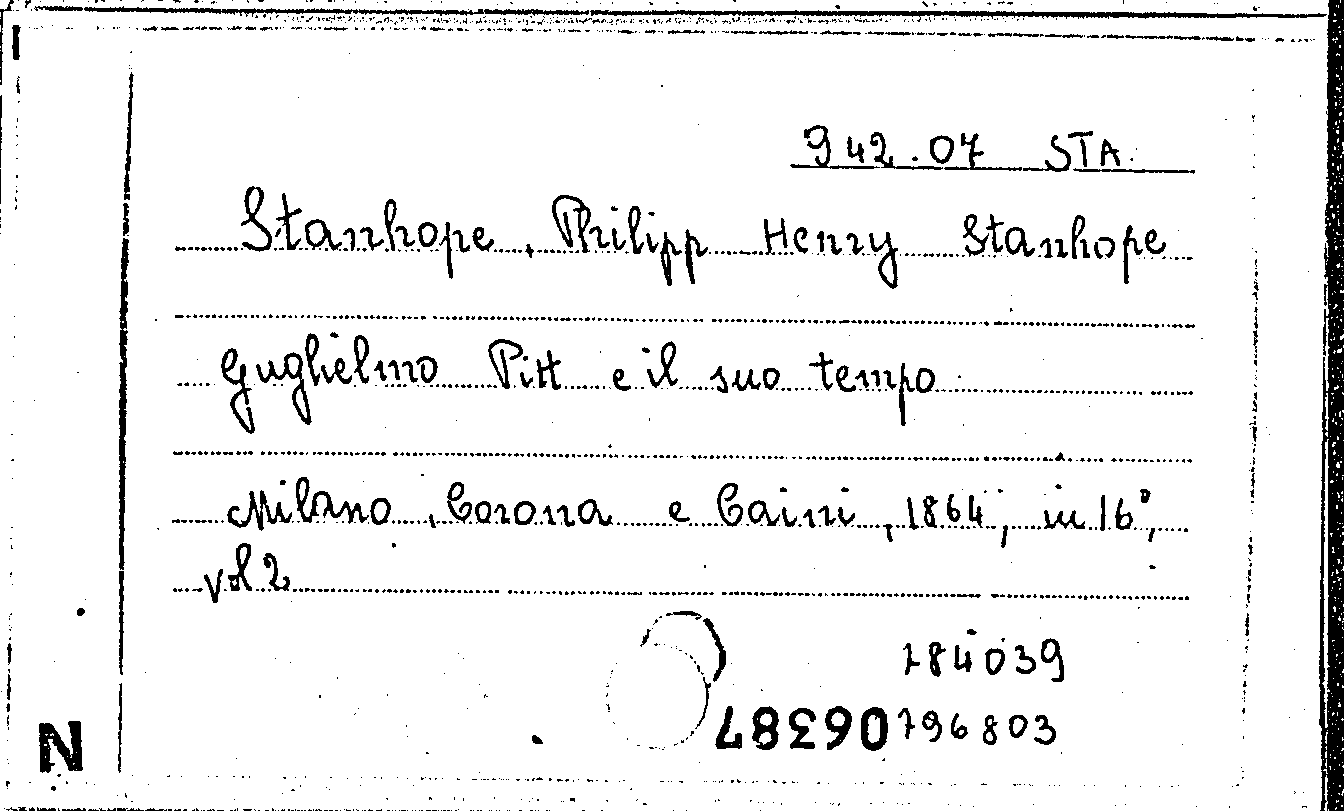 942.07 STA.
Stanhope, Philipp Henry Stanhope
Guglielmo Pitt e il suo tempo.
Milano, Corona e Caimi, 1864, in 16°,
vol 2
184039
06387
796803
N